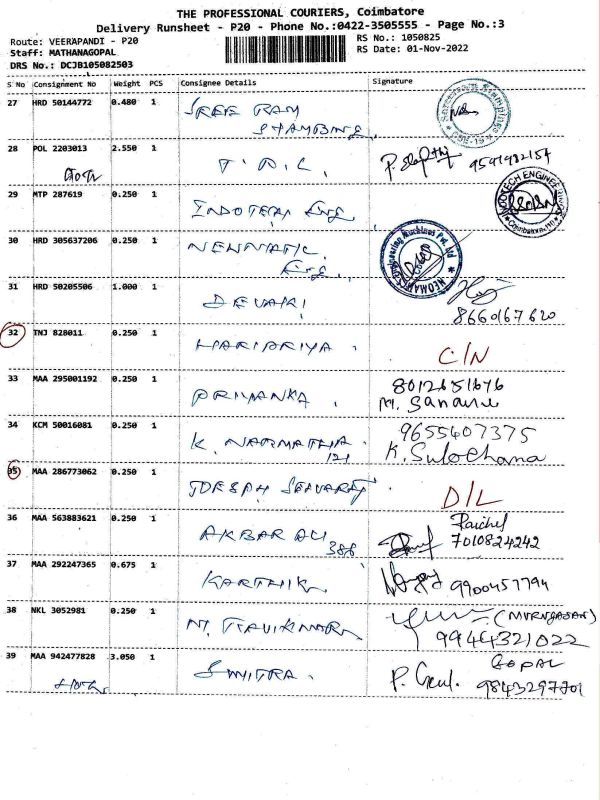 THE PROFESSIONAL COURIERS, Coimbatore
Delivery Runsheet - P20 - Phone No.:0422-3505555 - Page No.:3
Route: VEERAPANDI - P20
RS No.: 1050825
Staff: MATHANAGOPAL
RS Date: 01-Nov-2022
DRS No.: DCJB105082503
S No Consignment No Weight PCS Consignee Details Signature
27 HRD 50144772 0.480 1 SREE RAM
28 POL 2203013 2.550 1 T.A.C.
29 MTP 287619 0.250 1 INDOTECH Eng
INDOTECH ENGINEE
Coimbatore
30 HRD 305637206 0.250 1 NEWMATIC
Eng.
31 HRD 50205506 1.000 1 DEVAKI
8660167620
32 TNJ 828011 0.250 1 HARIPRIYA. C/N
33 MAA 295001192 0.250 1 PRIYANKA. 8012651676
34 KCM 50016081 0.250 1 K. NARMATHA. 9655407375
121 K. Sulochana
35 MAA 286773062 0.250 1 JOESPH SELVARAJ D/L
36 MAA 563883621 0.250 1 AKBAR ALI
386 7010824242
37 MAA 292247365 0.675 1 KARTHIK 9900457794
38 NKL 3052981 0.250 1 N. RAVIKUMAR (MURUGASAN)
9944321022
39 MAA 942477828 3.050 1 SMITRA. GOPAL
9843297701